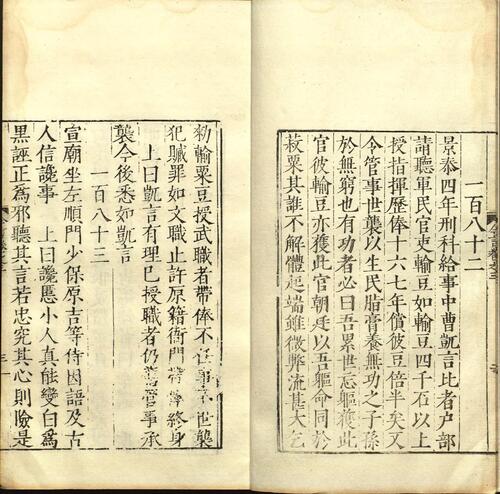 一百八十二
景泰四年刑科給事中曹凱言比者户部
請聽軍民官吏輸豆如輸豆四千石以上
授指揮歷俸十六七年償彼豆倍半矣又
令管事世襲以生民脂膏養無功之子孫
於無窮也有功者必曰吾累世忘軀獲此
官彼輸豆亦獲此官朝廷以吾軀命同於
菽粟其誰不解體起端雖微弊流甚大乞
勑輸粟豆授武職者帶俸不任事不世襲
犯贓罪如文職止許原籍衙門帶俸終身
上曰凱言有理已授職者仍舊管事承
襲今後悉如凱言
一百八十三
宣廟坐左順門少保原吉等侍因語及古
人信讒事　上曰讒慝小人真能變白爲
黑誣正爲邪聽其言若忠究其心則險是